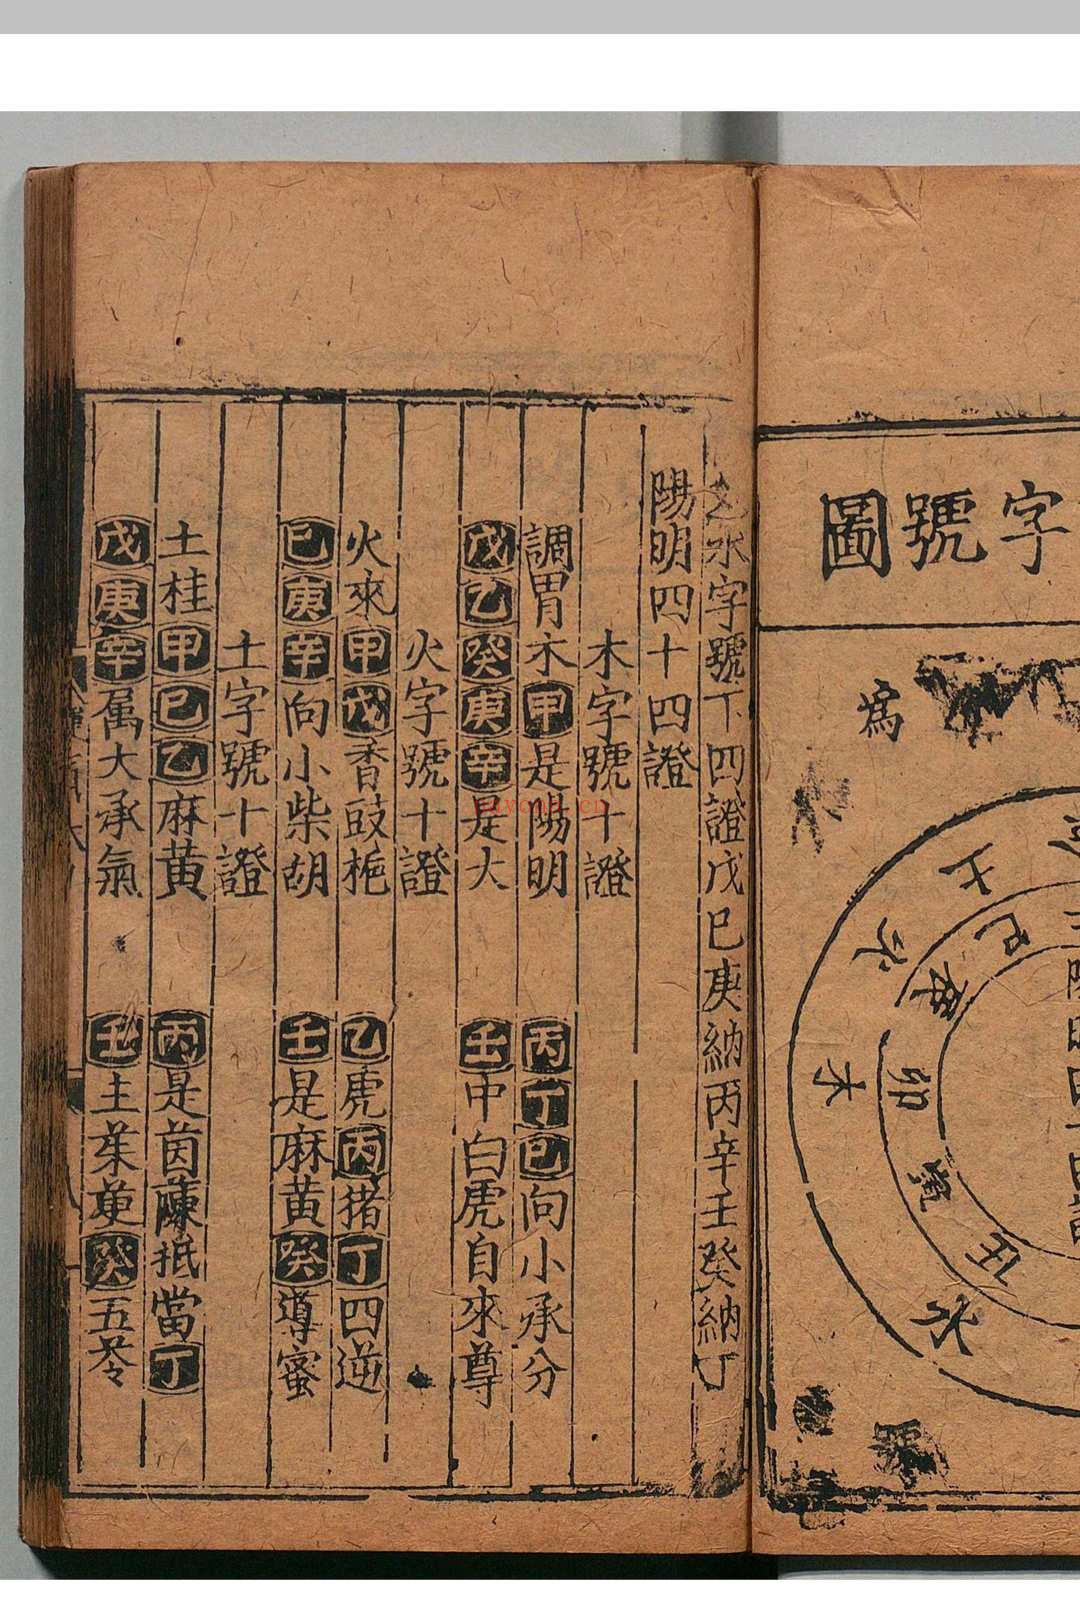 字號圖
為
水
土
巳
字
辛
木
卯
癸
丑
水
號
之水字號下四證戊巳庚納丙辛壬癸納丁
陽明四十四證
木字號十證
調胃木甲是陽明 丙丁巳向小承分
戊乙癸庚辛是大 壬中白虎自來尊
火字號十證
火來甲戊香豉梔 乙虎丙猪丁四逆
巳庚辛向小柴胡 壬是麻黃癸導蜜
土字號十證
土桂甲巳乙麻黃 丙是茵蔯抵當丁
戊庚辛属大承氣 壬主茱萸癸五苓